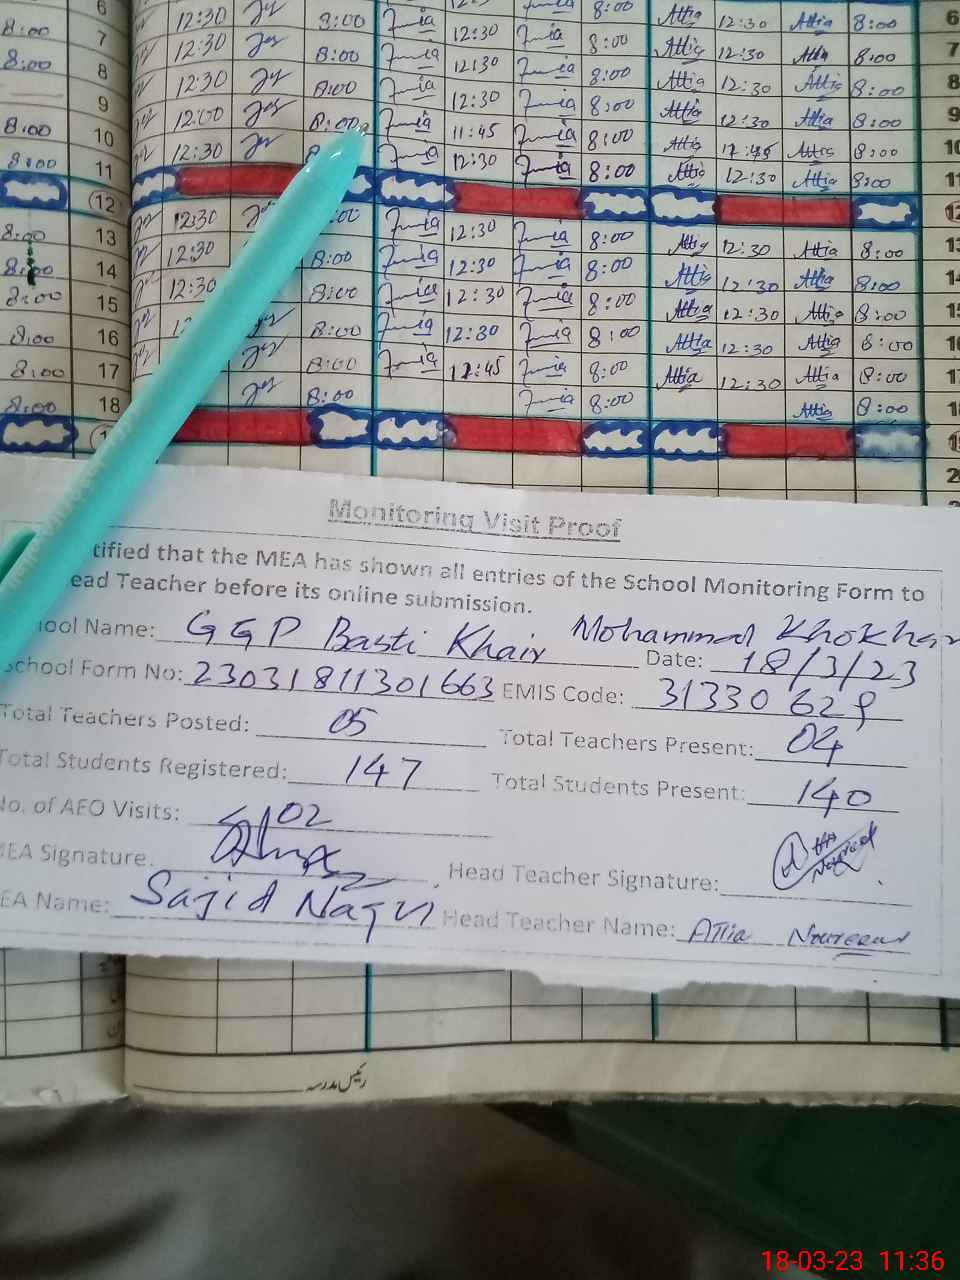 6 12:30 8:00 8:00 Attia 12:30 Attia 8:00 6
8:00 7 12:30 8:00 12:30 8:00 Attia 12:30 Attia 8:00 7
8:00 8 12:30 8:00 12:30 8:00 Attia 12:30 Attia 8:00 8
9 12:00 8:00 12:30 8:00 Attia 12:30 Attia 8:00 9
8:00 10 12:30 11:45 8:00 Attia Attia 8:00 10
8:00 11 12:30 8:00 Attia 12:30 Attia 8:00 11
12
8:00 13 12:30 12:30 8:00 Attia 12:30 Attia 8:00 13
8:00 14 12:30 8:00 12:30 8:00 Attia 12:30 Attia 8:00 14
8:00 15 12:30 8:00 12:30 8:00 Attia 12:30 Attia 8:00
8:00 16 8:00 12:30 8:00 Attia 12:30 Attia 8:00
8:00 17 8:00 12:45 8:00 Attia 12:30 Attia 8:00
8:00 18 8:00 8:00 Attia 8:00
Monitoring Visit Proof
tified that the MEA has shown all entries of the School Monitoring Form to
ead Teacher before its online submission.
ool Name: GGP Basti Khair Mohammad Khokhar Date: 18/3/23
School Form No: 23031811301663 EMIS Code: 31330629
Total Teachers Posted: 05 Total Teachers Present: 04
Total Students Registered: 147 Total Students Present: 140
No. of AEO Visits: 02
MEA Signature. Head Teacher Signature:
EA Name: Sajid Naqvi Head Teacher Name: Attia Noureen
رئیس مدرسہ
18-03-23 11:36